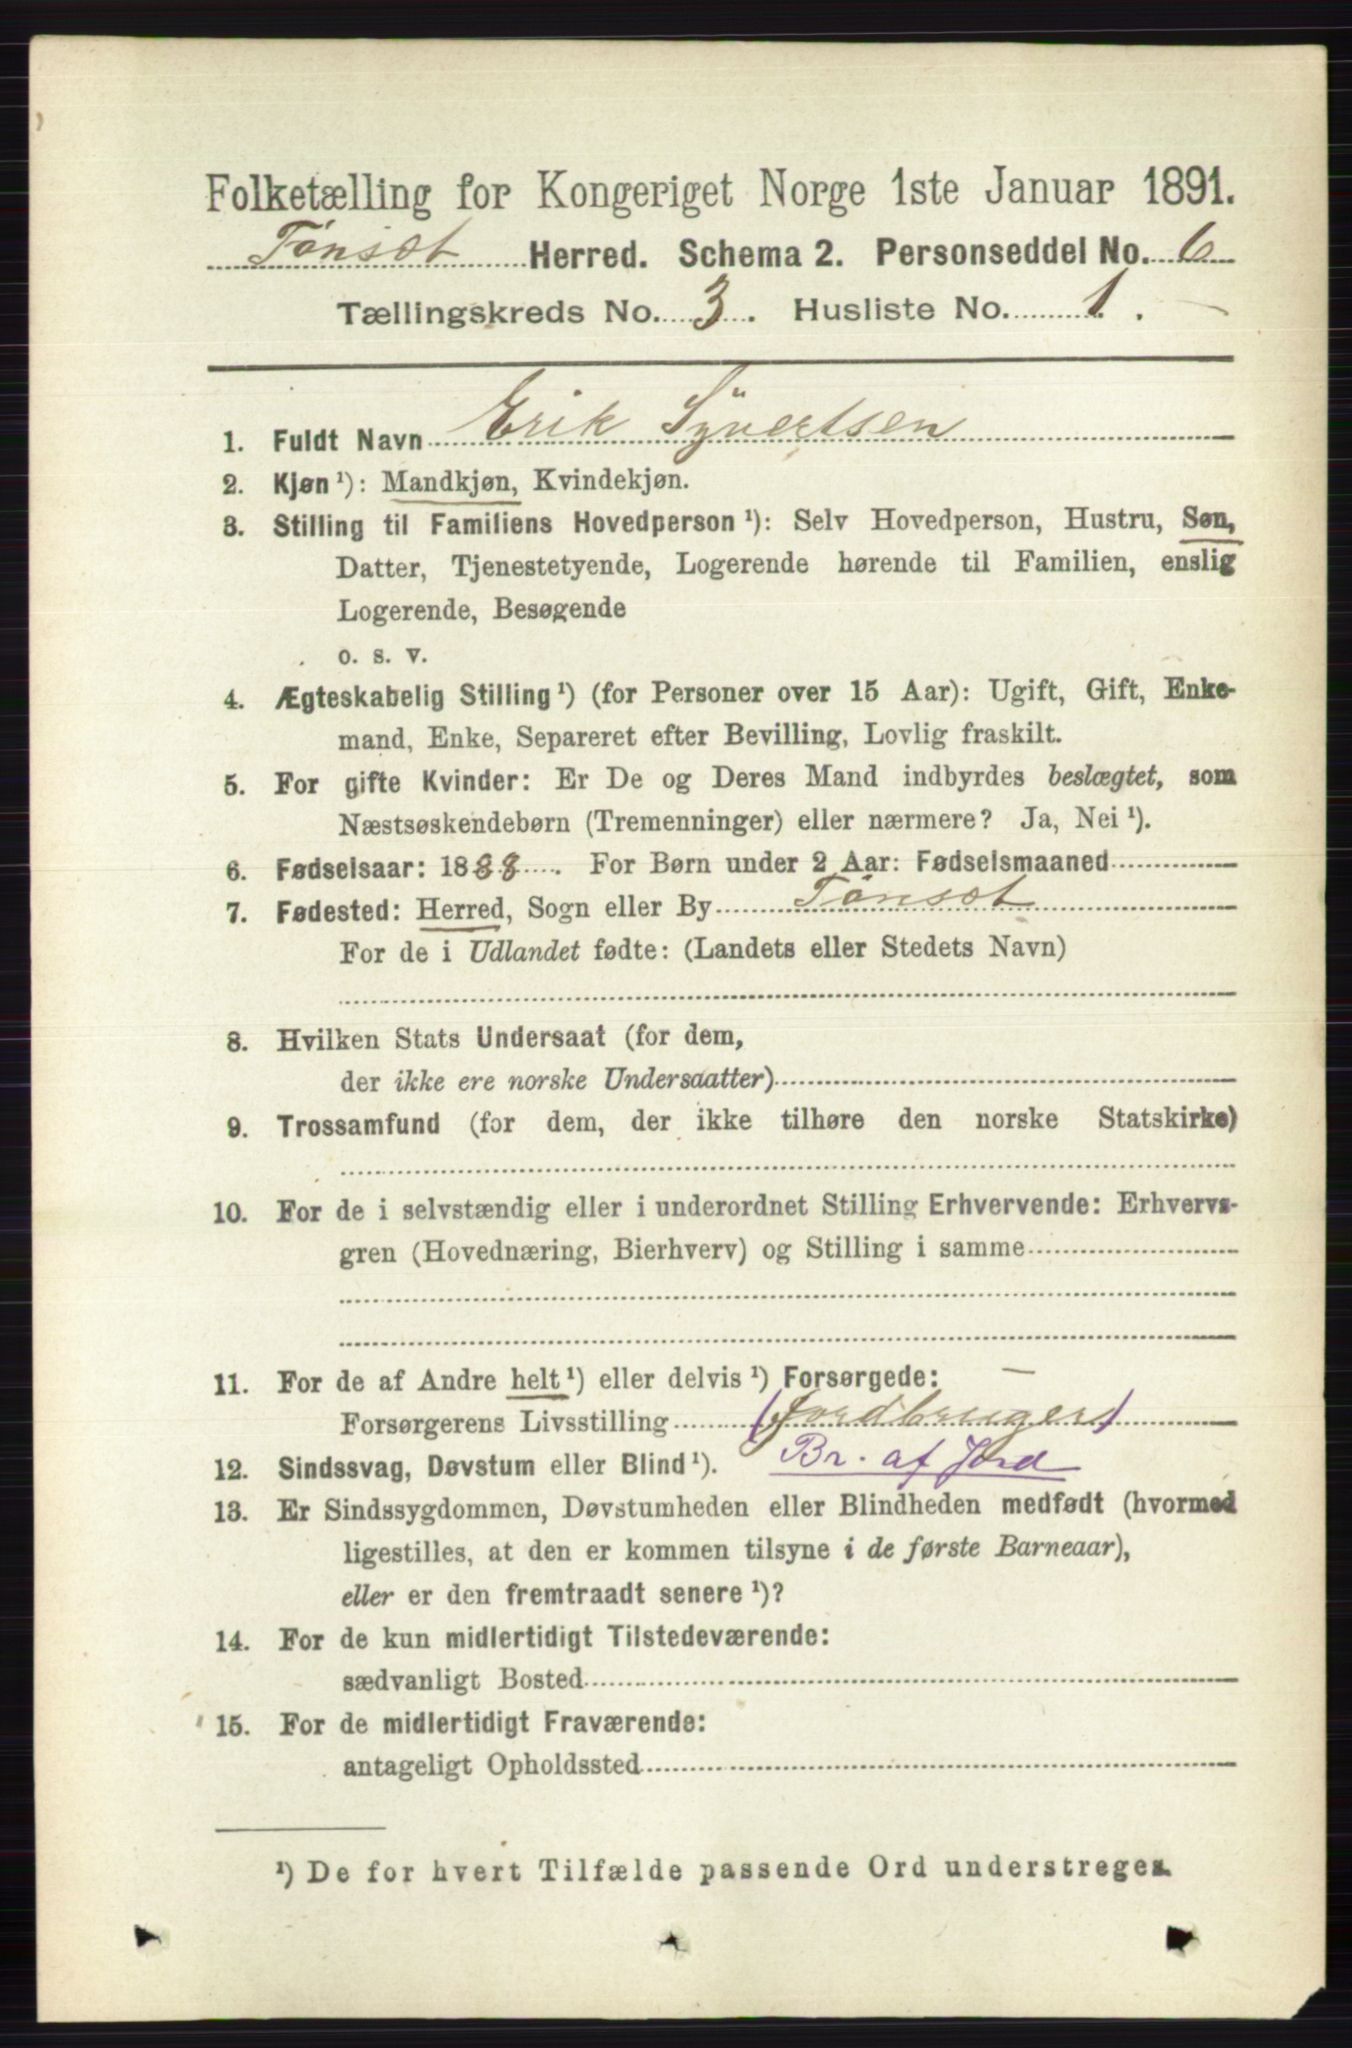 Folketælling for Kongeriget Norge 1ste Januar 1891.
Tønset Herred. Schema 2. Personseddel No. 6
Tællingskreds No. 3. Husliste No. 1.
1. Fuldt Navn Erik Syvertsen
2. Kjøn ¹): Mandkjøn, Kvindekjøn.
3. Stilling til Familiens Hovedperson ¹): Selv Hovedperson, Hustru, Søn,
Datter, Tjenestetyende, Logerende hørende til Familien, enslig
Logerende, Besøgende
o. s. v.
4. Ægteskabelig Stilling ¹) (for Personer over 15 Aar): Ugift, Gift, Enke-
mand, Enke, Separeret efter Bevilling, Lovlig fraskilt.
5. For gifte Kvinder: Er De og Deres Mand indbyrdes beslægtet, som
Næstsøskendebørn (Tremenninger) eller nærmere? Ja, Nei ¹).
6. Fødselsaar: 1888. For Børn under 2 Aar: Fødselsmaaned
7. Fødested: Herred, Sogn eller By Tønset
For de i Udlandet fødte: (Landets eller Stedets Navn)
8. Hvilken Stats Undersaat (for dem,
der ikke ere norske Undersaatter)
9. Trossamfund (for dem, der ikke tilhøre den norske Statskirke)
10. For de i selvstændig eller i underordnet Stilling Erhvervende: Erhvervs-
gren (Hovednæring, Bierhverv) og Stilling i samme
11. For de af Andre helt ¹) eller delvis ¹) Forsørgede: —
Forsørgerens Livsstilling (Jordbruger)
12. Sindssvag, Døvstum eller Blind ¹). Br. af Jord
13. Er Sindssygdommen, Døvstumheden eller Blindheden medfødt (hvormed
ligestilles, at den er kommen tilsyne i de første Barneaar),
eller er den fremtraadt senere ¹)?
14. For de kun midlertidigt Tilstedeværende:
sædvanligt Bosted
15. For de midlertidigt Fraværende:
antageligt Opholdssted
¹) De for hvert Tilfælde passende Ord understreges.